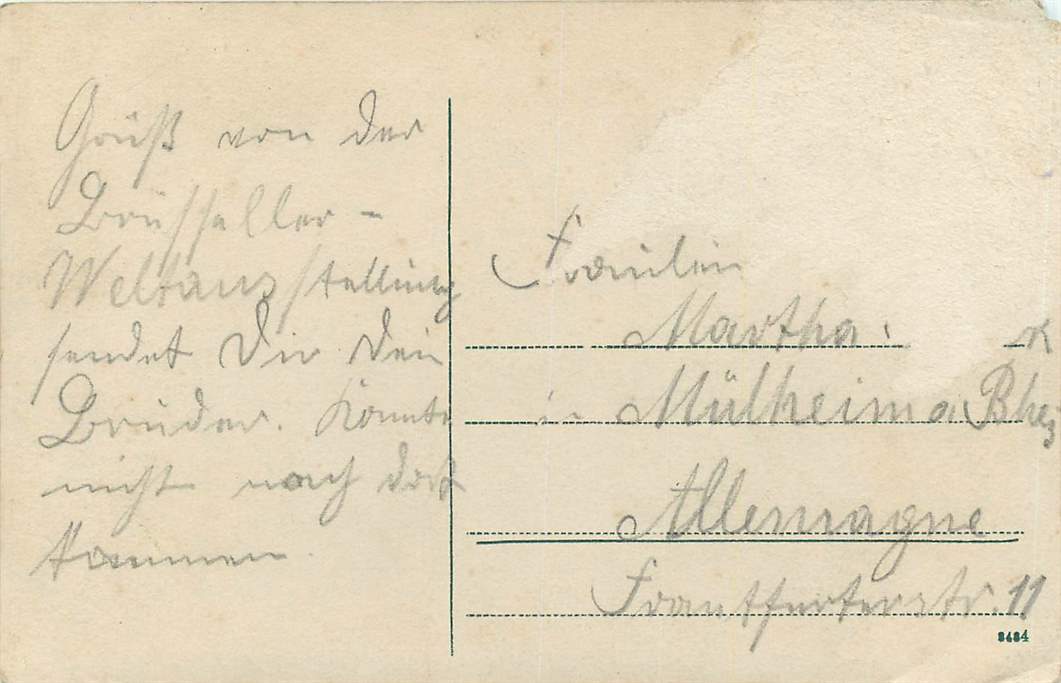 Gruß von der
Brüsseller-
Weltausstellung
sendet Dir Dein
Bruder. Konnte
nicht nach dort
kommen.
Fräulein
Martha
in Mülheim a
Allemagne
Frankfurterstr. 11
8484